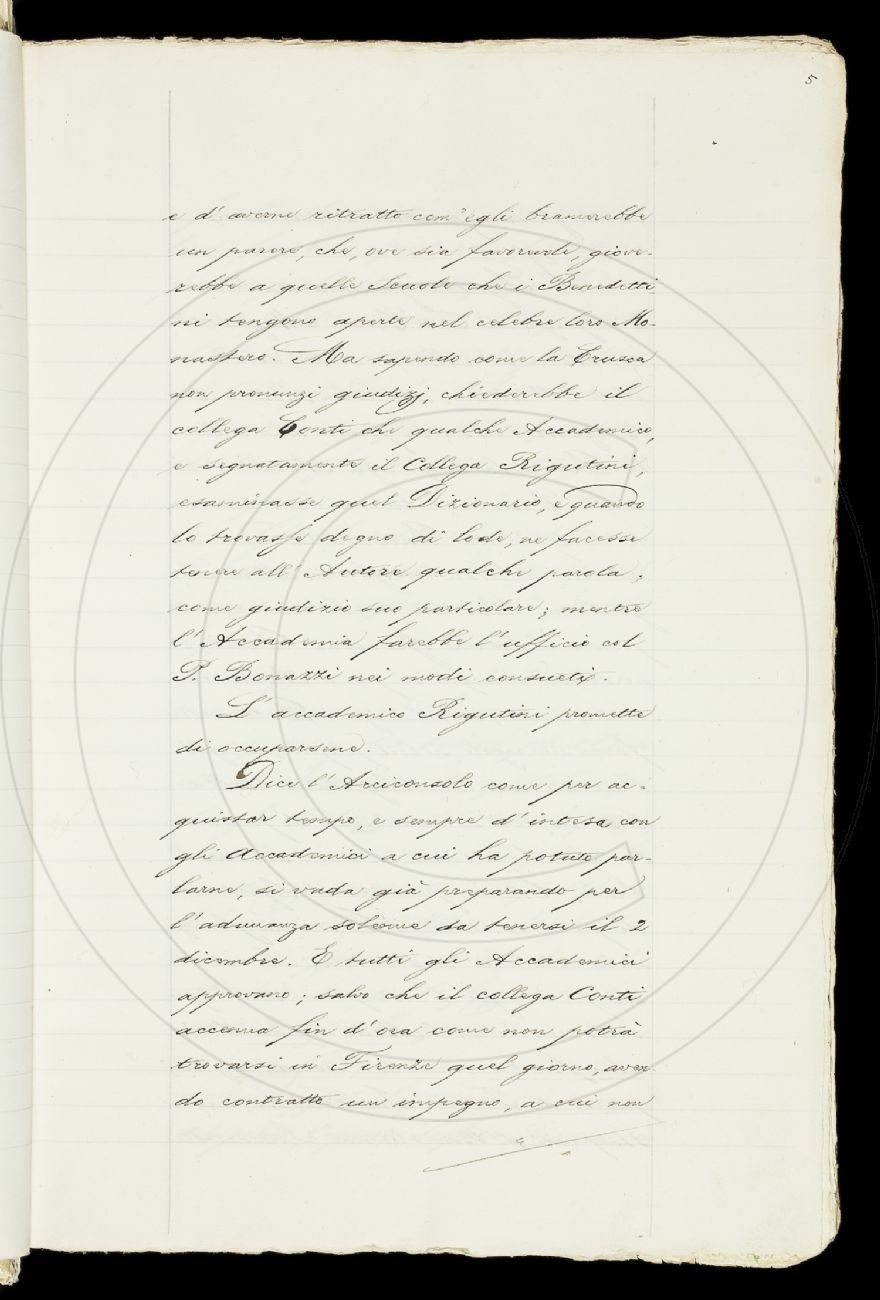 5
e d' averne ritratto com' egli bramerebbe
un parere, che, ove sia favorevole, giove-
rebbe a quelle Scuole che i Benedetti
ni tengono aperte nel celebre loro Mo-
nastero. Ma sapendo come la Crusca
non pronunzi giudizj, chiederebbe il
collega Conti che qualche Accademico,
e segnatamente il Collega Rigutini,
esaminasse quel Dizionario, e quando
lo trovasse degno di lode, ne facesse
tenere all' Autore qualche parola,
come giudizio suo particolare; mentre
l' Accademia farebbe l' ufficio col
P. Bonazzi nei modi consueti.
L' accademico Rigutini promette
di occuparsene.
Dice l' Arciconsolo come per ac-
quistar tempo, e sempre d' intesa con
gli Accademici a cui ha potuto par-
larne, si vada già preparando per
l' adunanza solenne da tenersi il 2
dicembre. E tutti gli Accademici
approvano; salvo che il collega Conti
accenna fin d' ora come non potrà
trovarsi in Firenze quel giorno, aven
do contratto un impegno, a cui non